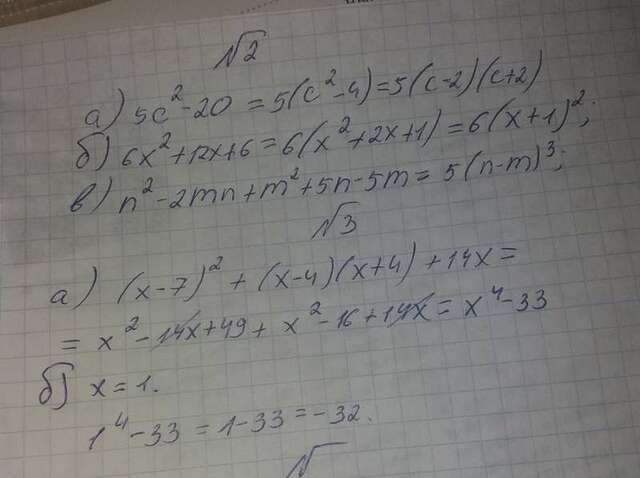 №2
а) 5c² - 20 = 5(c² - 4) = 5(c-2)(c+2)
б) 6x² + 12x + 6 = 6(x² + 2x + 1) = 6(x+1)²;
в) n² - 2mn + m² + 5n - 5m = 5(n-m)³;
№3
а) (x-7)² + (x-4)(x+4) + 14x =
= x² - 14x + 49 + x² - 16 + 14x = x⁴ - 33
б) x = 1.
1⁴ - 33 = 1 - 33 = -32.
№